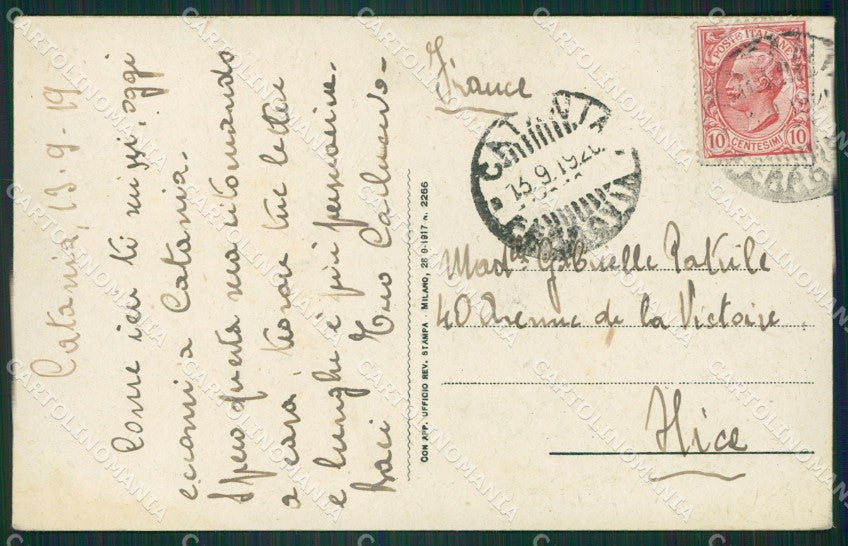 Catania, 13-9-19
Come ieri ti scrissi, oggi
eccomi a Catania.
Spero questa sera ritornando
a casa trovar tue lettere
e lunghi e più pensieri.
Baci Tuo
CON APP. UFFICIO REV. STAMPA - MILANO, 28-9-1917 N. 2266
France
POSTE ITALIANE
10 CENTESIMI 10
CATANIA
13.9.192
Mad.lle Gabrielle
40 Avenue de la Victoire
Nice
CARTOLINOMANIA